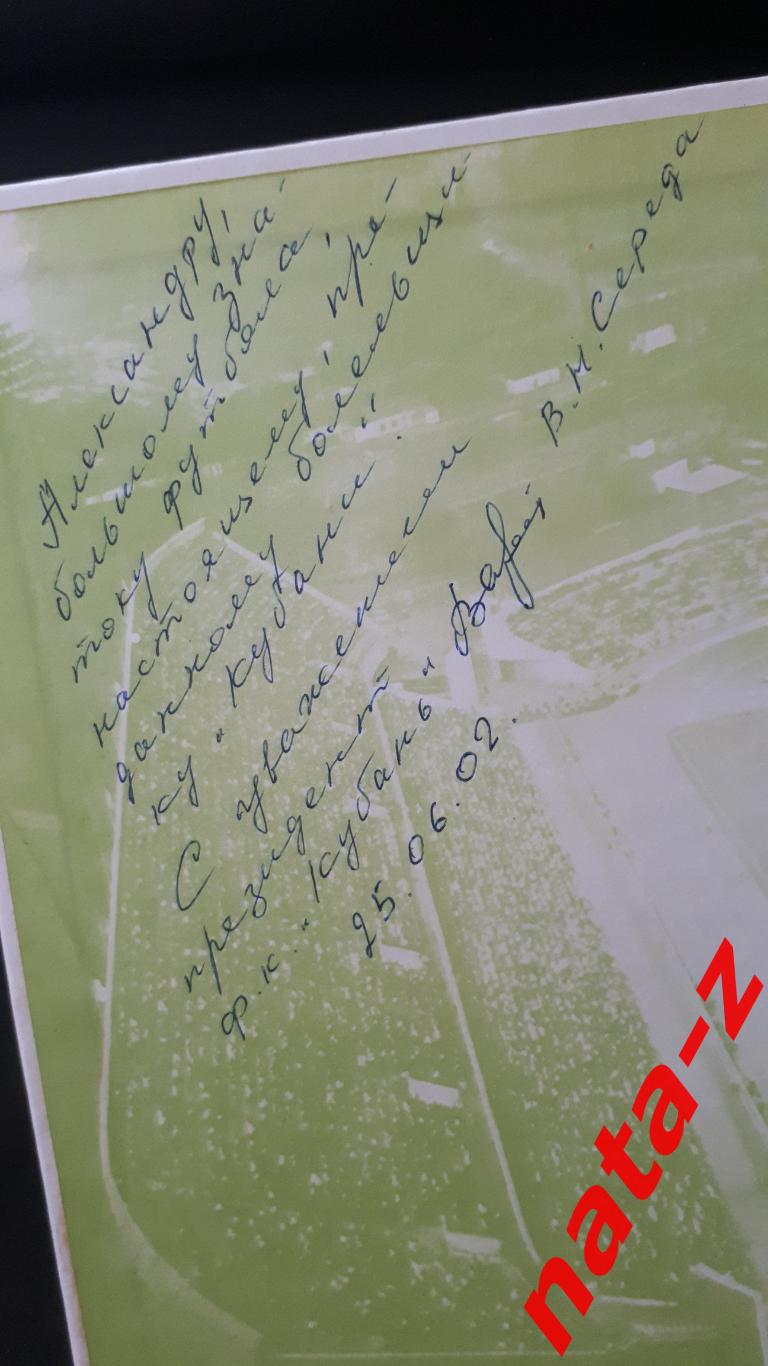 Александру,
большому зна-
току футбола,
настоящему, пре-
данному болельщи-
ку "Кубани".
С уважением
президент
ф.к. "Кубань" В.Н. Середа
25.06.02.
nata-z